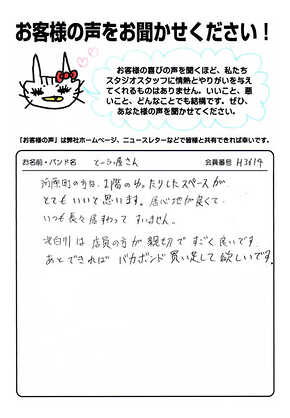 お客様の声をお聞かせください！
お客様の喜びの声を聞くほど、私たち
スタジオスタッフに情熱とやりがいを与え
てくれるものはありません。いいこと、悪
いこと、どんなことでも結構です。ぜひ、
あなた様の声を聞かせてください。
「お客様の声」は弊社ホームページ、ニュースレターなどで皆様と共有できれば幸いです。
お名前・バンド名 とーふ屋さん 会員番号 H3614
河原町の方は、2階のゆったりしたスペースが
とてもいいと思います。居心地が良くて
いつも長々居すわって すいません。
北白川は 店員の方が 親切で すごく良いです。
あとできれば バカボンド 買い足して欲しいです。